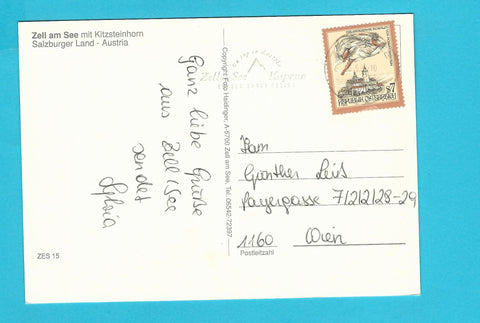 Zell am See mit Kitzsteinhorn
Salzburger Land - Austria
Ganz liebe Grüße
aus Zell/See
sendet
Sylvia
ZES 15
Copyright Foto Haidinger, A-5700 Zell am See, Tel. 06542-72397
Zell See Kaprun
S7
REPUBLIK ÖSTERREICH
Günther
Payergasse 7/2/2/28-29
1160 Wien
Postleitzahl